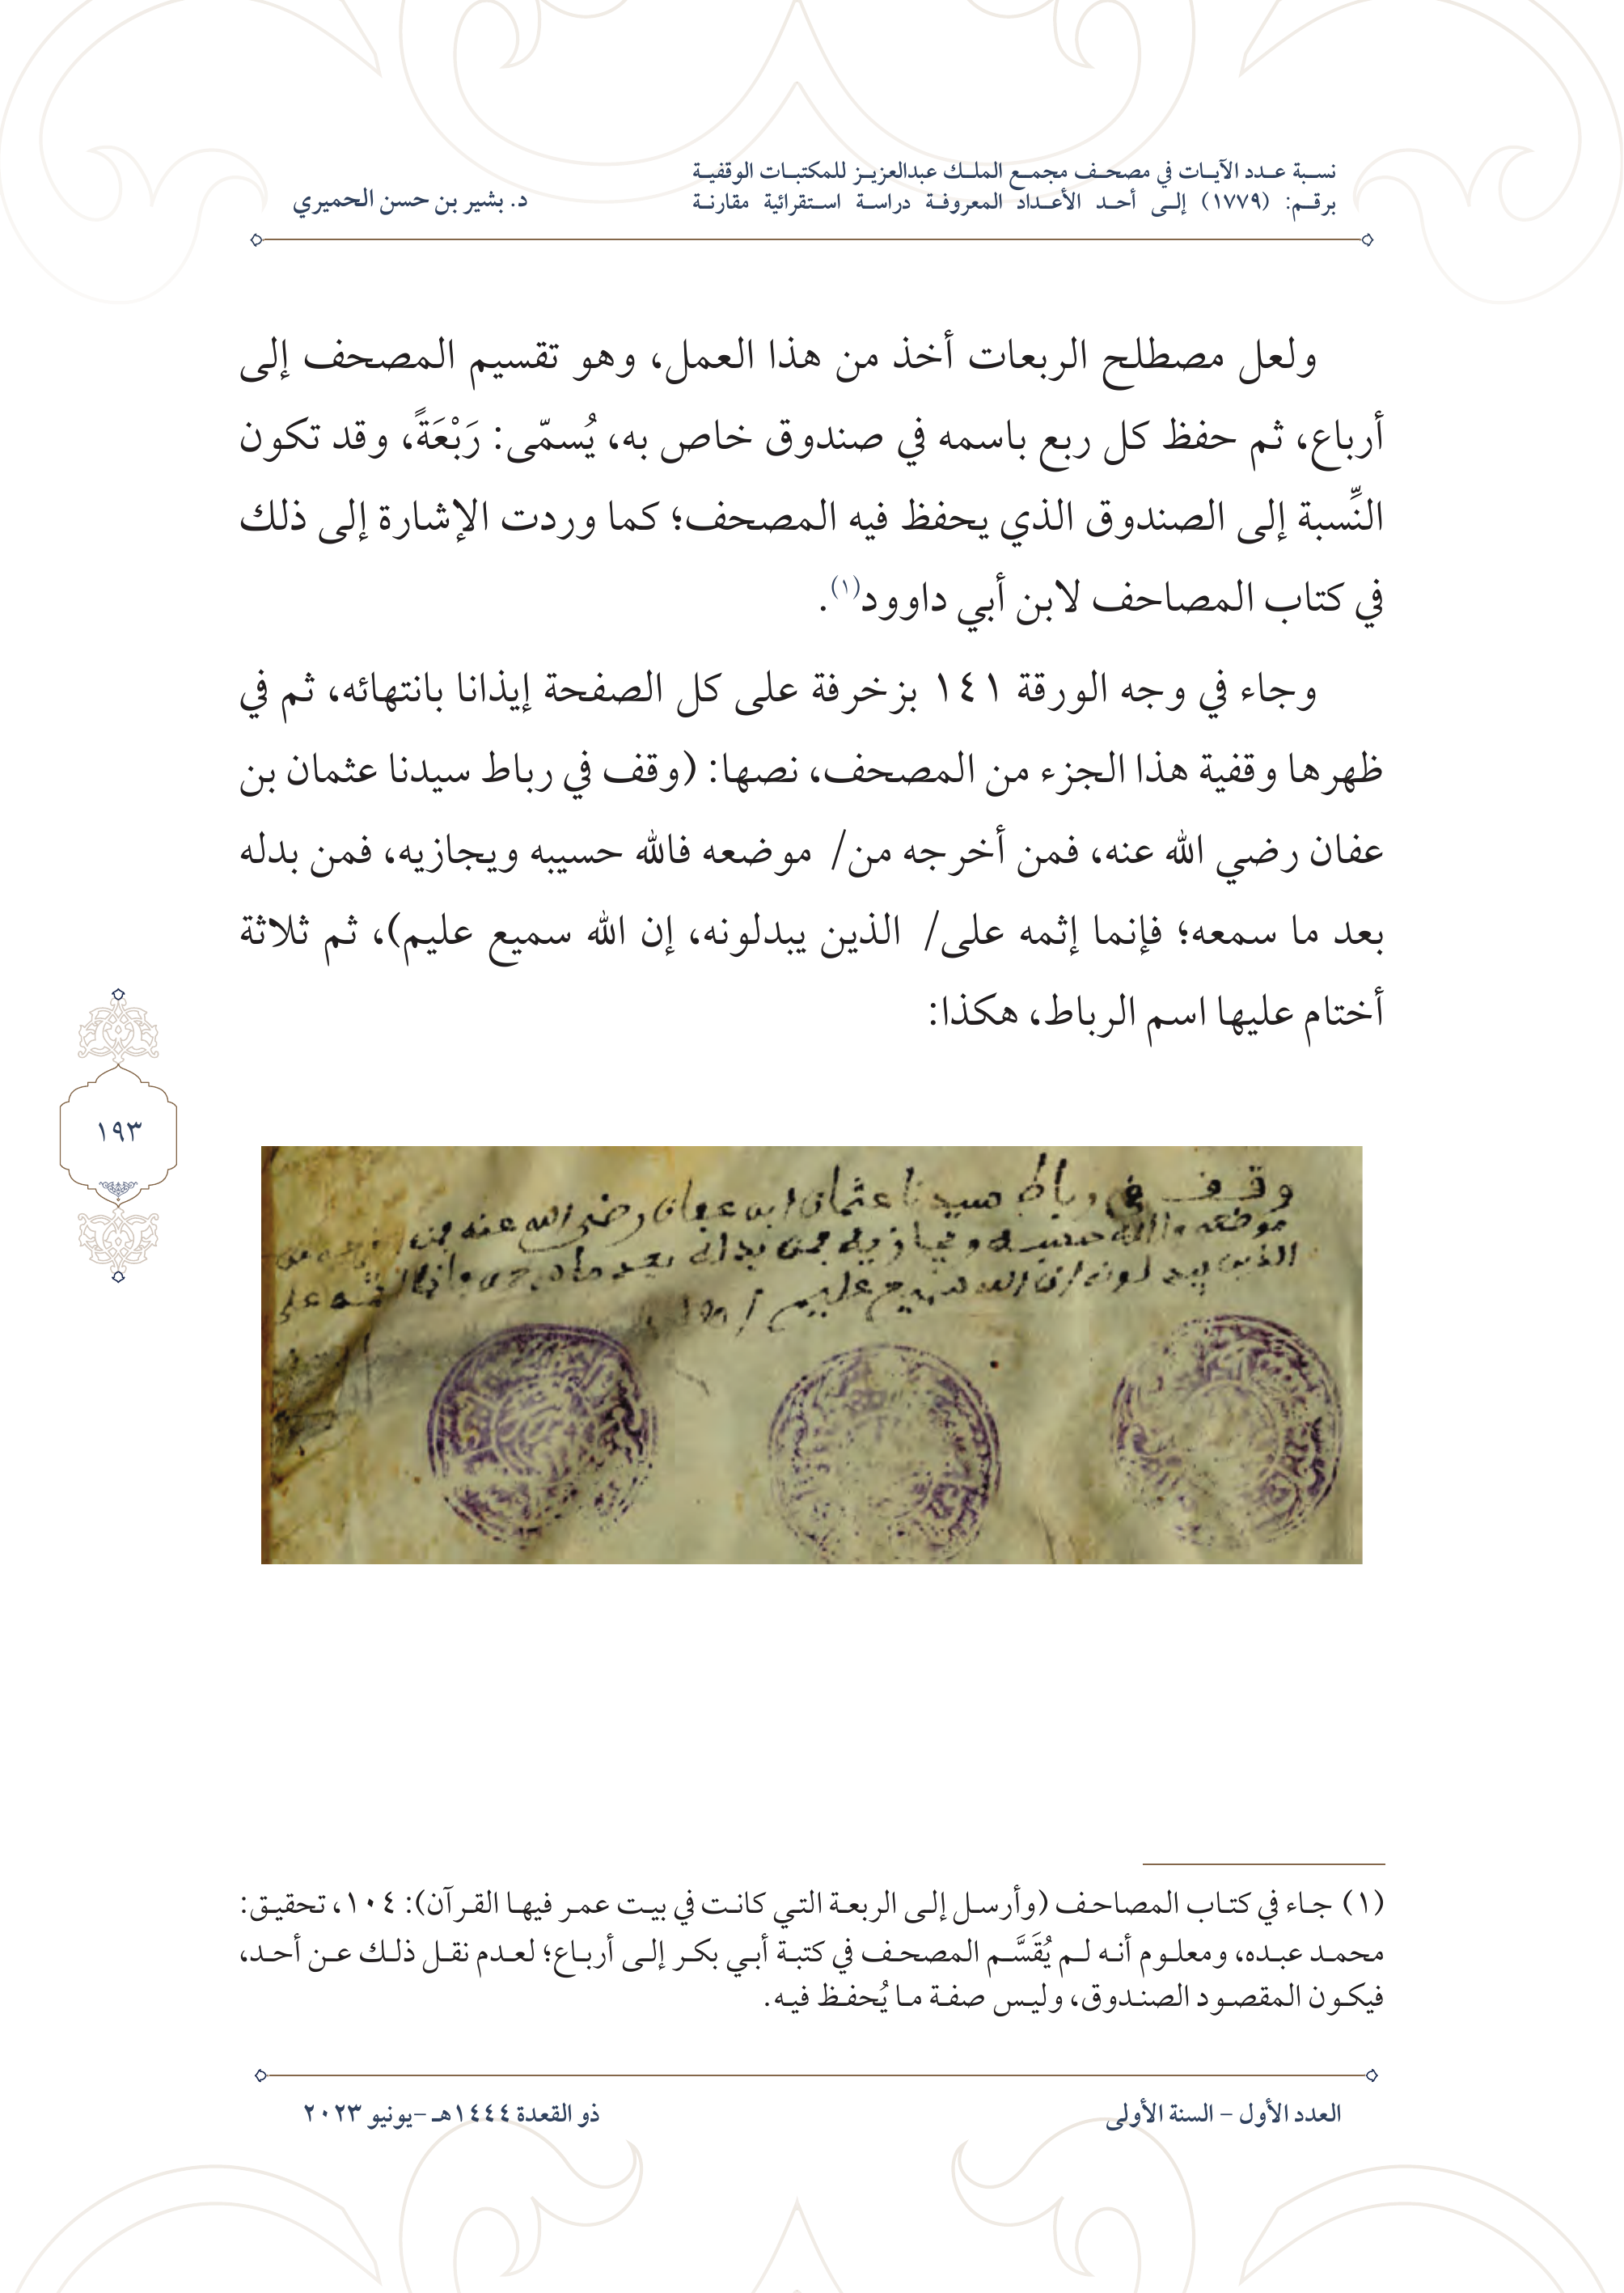 نسبة عدد الآيات في مصحف مجمع الملك عبدالعزيز للمكتبات الوقفية
برقم: (١٧٧٩) إلى أحد الأعداد المعروفة دراسة استقرائية مقارنة
د. بشير بن حسن الحميري
ولعل مصطلح الربعات أخذ من هذا العمل، وهو تقسيم المصحف إلى
أرباع، ثم حفظ كل ربع باسمه في صندوق خاص به، يُسمّى: رَبْعَةً، وقد تكون
النِّسبة إلى الصندوق الذي يحفظ فيه المصحف؛ كما وردت الإشارة إلى ذلك
في كتاب المصاحف لابن أبي داوود(١).
وجاء في وجه الورقة ١٤١ بزخرفة على كل الصفحة إيذانا بانتهائه، ثم في
ظهرها وقفية هذا الجزء من المصحف، نصها: (وقف في رباط سيدنا عثمان بن
عفان رضي الله عنه، فمن أخرجه من/ موضعه فالله حسيبه ويجازيه، فمن بدله
بعد ما سمعه؛ فإنما إثمه على/ الذين يبدلونه، إن الله سميع عليم)، ثم ثلاثة
أختام عليها اسم الرباط، هكذا:
١٩٣
وقف في رباط سيدنا عثمان ابن عفان رضي الله عنه فمن
موضعه فالله حسيبه ويجازيه فمن بدله بعد ما على
الذين يبدلونه ان الله سميع عليم
(١) جاء في كتاب المصاحف (وأرسل إلى الربعة التي كانت في بيت عمر فيها القرآن): ١٠٤، تحقيق:
محمد عبده، ومعلوم أنه لم يُقَسَّم المصحف في كتبة أبي بكر إلى أرباع؛ لعدم نقل ذلك عن أحد،
فيكون المقصود الصندوق، وليس صفة ما يُحفظ فيه.
العدد الأول – السنة الأولى
ذو القعدة ١٤٤٤هـ –يونيو ٢٠٢٣